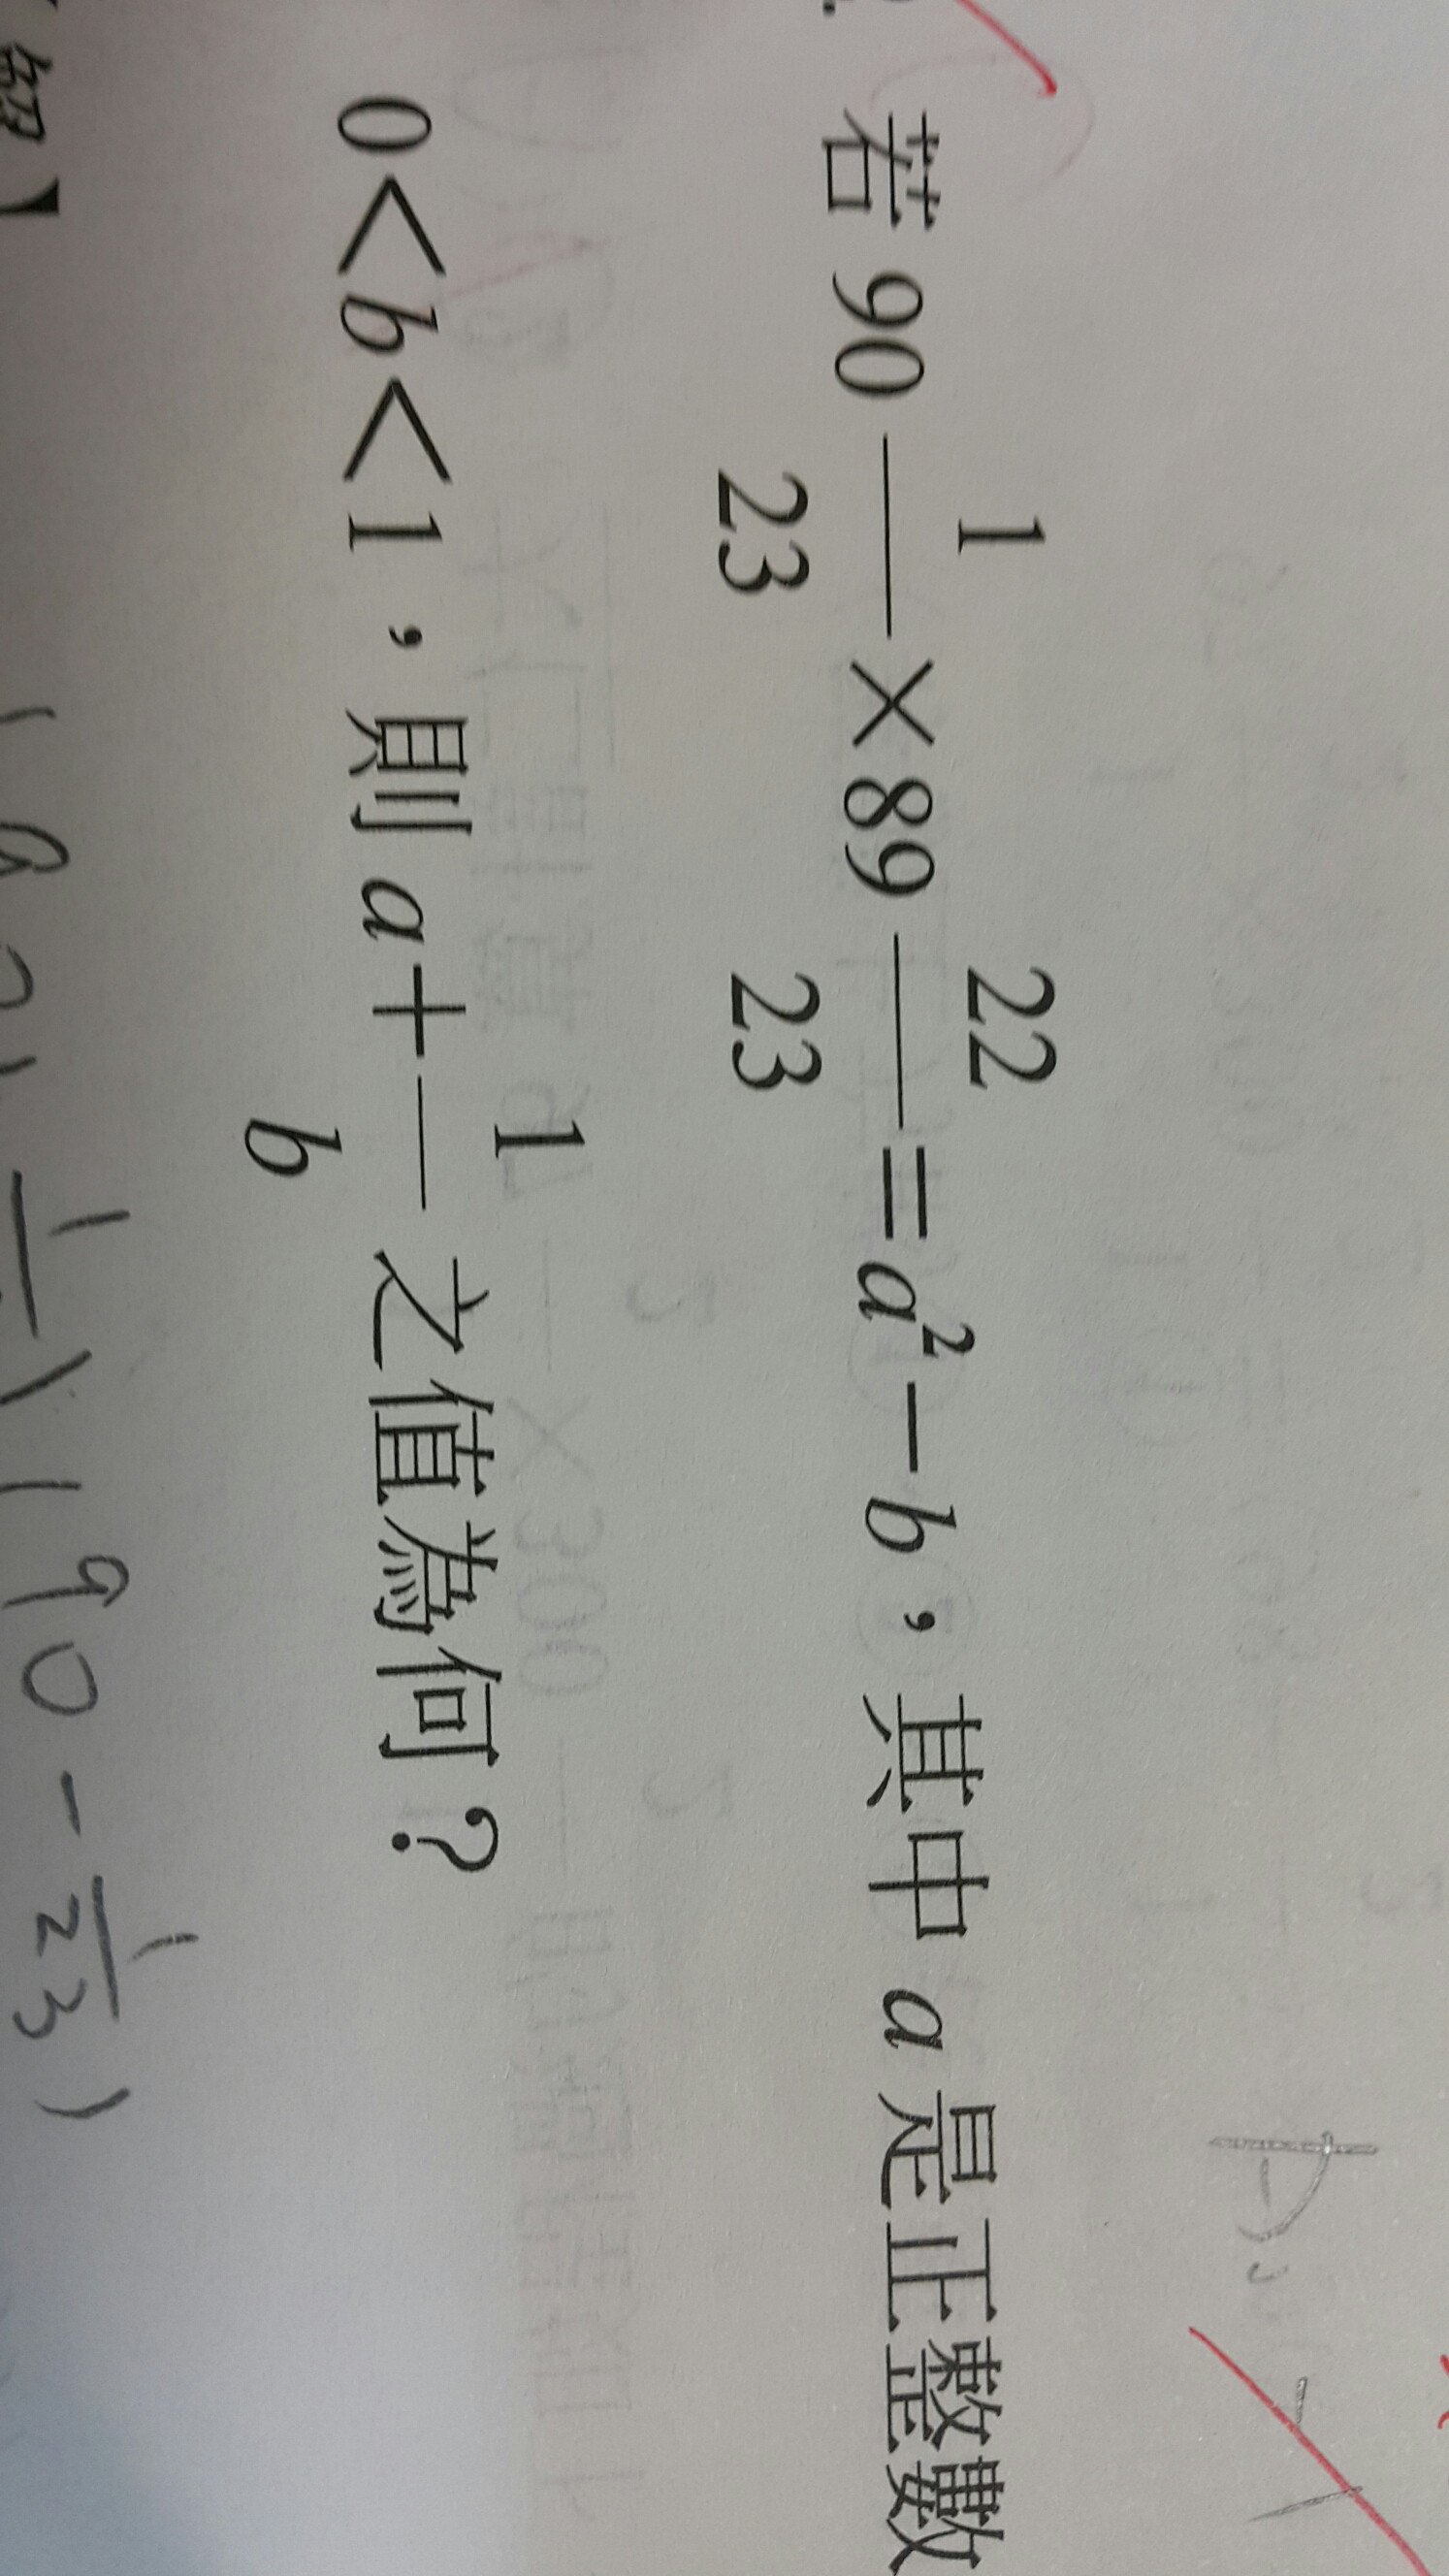 若 90 1/23 × 89 22/23 = a² − b，其中 a 是正整數
0 < b < 1，則 a + 1/b 之值為何？
解】
90 − 1/23 )